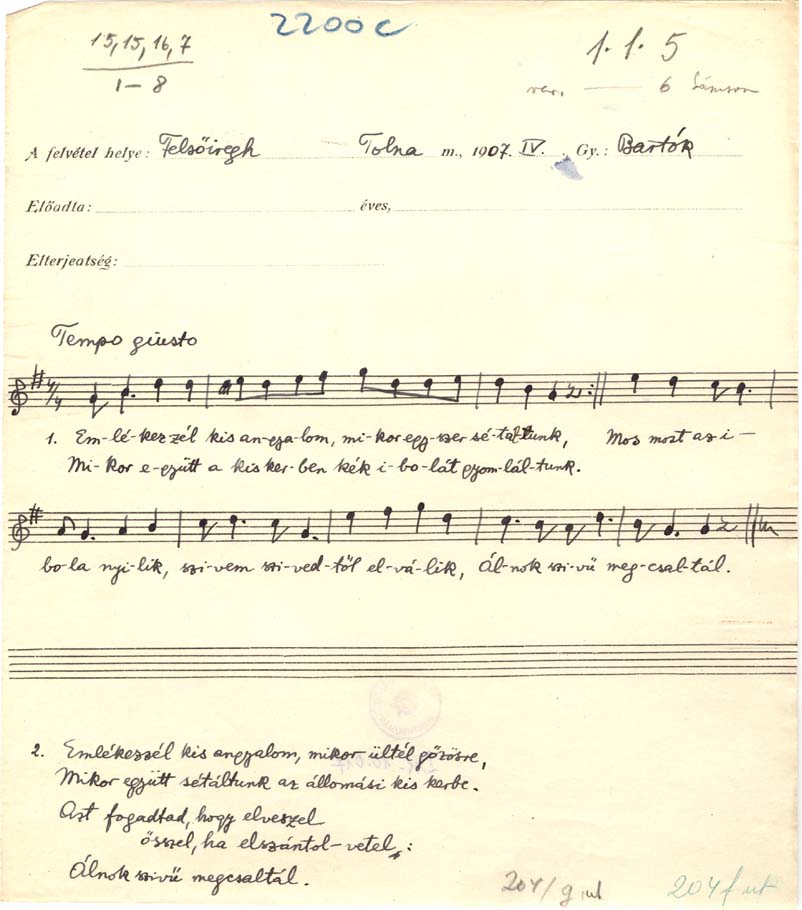 2200c
15, 15, 16, 7
1-8
1. 1. 5
var. — 6 Sámson
A felvétel helye: Felsőiregh Tolna m., 1907. IV. Gy.: Bartók
Előadta: éves,
Elterjeatség:
Tempo giusto
1. Em-lé-kez zél kis an-gya-lom, mi-kor egy-szer sé-tál-tunk, Mos most az i-
Mi-kor e-gyütt a kis ker-ben kék i-bo-lát gyom-lál-tunk.
bo-la nyi-lik, szi-vem szi-ved-től el-vá-lik, Ál-nok szi-vű meg-csal-tál.
2. Emlékezzél kis angyalom, mikor ültél gőzösre,
Mikor együtt sétáltunk az állomási kis kerbe.
Azt fogadtad, hogy elveszel
ősszel, ha elszántol-vetel;:
Álnok szivű megcsaltál.
204/g. ut
204 f ut